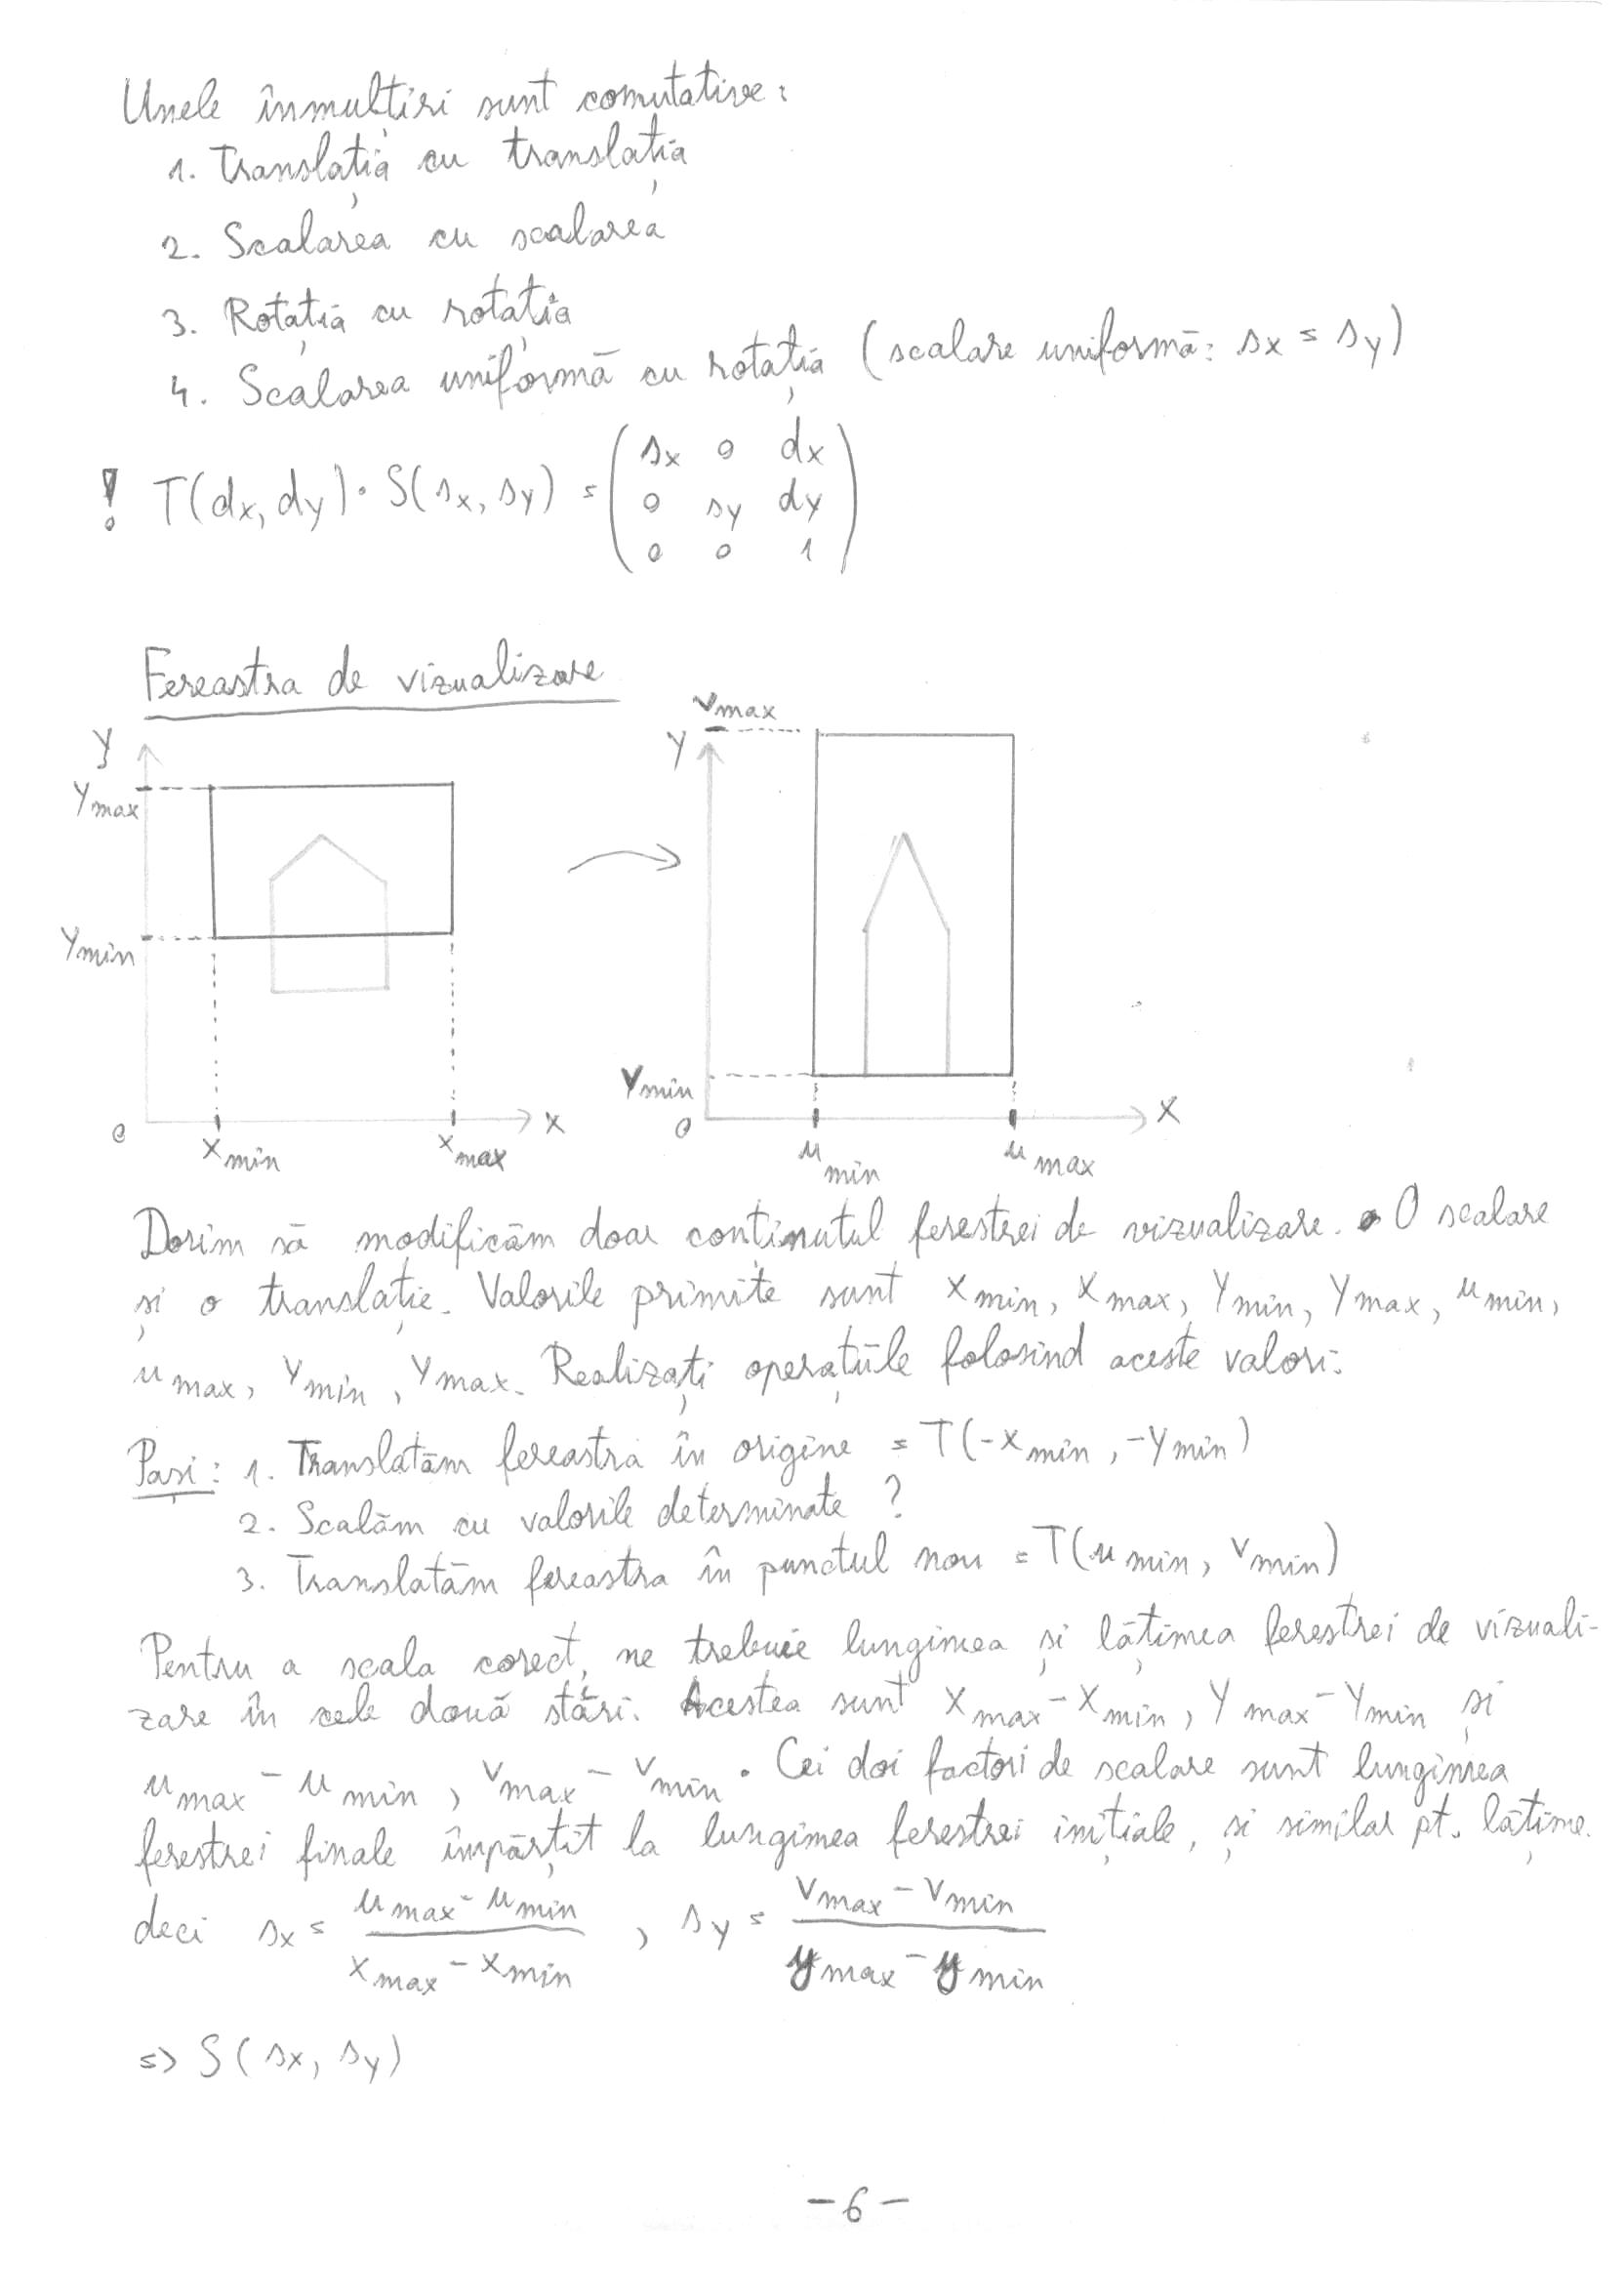 Unele înmulțiri sunt comutative:
1. Translația cu translația
2. Scalarea cu scalarea
3. Rotația cu rotația
4. Scalarea uniformă cu rotația (scalare uniformă: sx = sy)
! T(dx, dy) · S(sx, sy) = ( sx 0 dx
0 sy dy
0 0 1 )
Fereastra de vizualizare
y
ymax
ymin
0
xmin
xmax
x
vmax
y
vmin
0
umin
umax
x
Dorim să modificăm doar conținutul ferestrei de vizualizare. O scalare
și o translație. Valorile primite sunt xmin, xmax, ymin, ymax, umin,
umax, vmin, vmax. Realizați operațiile folosind aceste valori.
Pași: 1. Translatăm fereastra în origine = T(-xmin, -ymin)
2. Scalăm cu valorile determinate ?
3. Translatăm fereastra în punctul nou = T(umin, vmin)
Pentru a scala corect, ne trebuie lungimea și lățimea ferestrei de vizuali-
zare în cele două stări. Acestea sunt xmax - xmin, ymax - ymin și
umax - umin, vmax - vmin. Cei doi factori de scalare sunt lungimea
ferestrei finale împărțit la lungimea ferestrei inițiale, și similar pt. lățime.
deci sx = (umax - umin) / (xmax - xmin), sy = (vmax - vmin) / (ymax - ymin)
=> S(sx, sy)
- 6 -